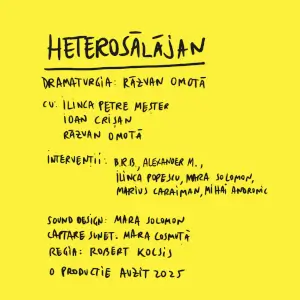 HETEROSĂLĂJAN
DRAMATURGIA: RĂZVAN OMOTĂ
CU: ILINCA PETRE MEȘTER
IOAN CRIȘAN
RĂZVAN OMOTĂ
INTERVENȚII: B.R.B., ALEXANDER M.,
ILINCA POPESCU, MARA SOLOMON,
MARIUS CARAIMAN, MIHAI ANDRONIC
SOUND DESIGN: MARA SOLOMON
CAPTARE SUNET: MARA COSMUTĂ
REGIA: ROBERT KOCSIS
O PRODUCTIE AUZIT 2025